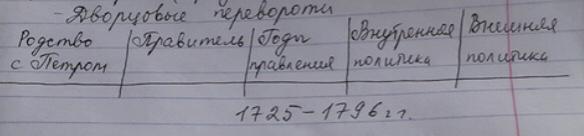 - Дворцовые перевороты
Родство с Петром | Правитель | Годы правления | Внутренняя политика | Внешняя политика
1725-1796 г г.